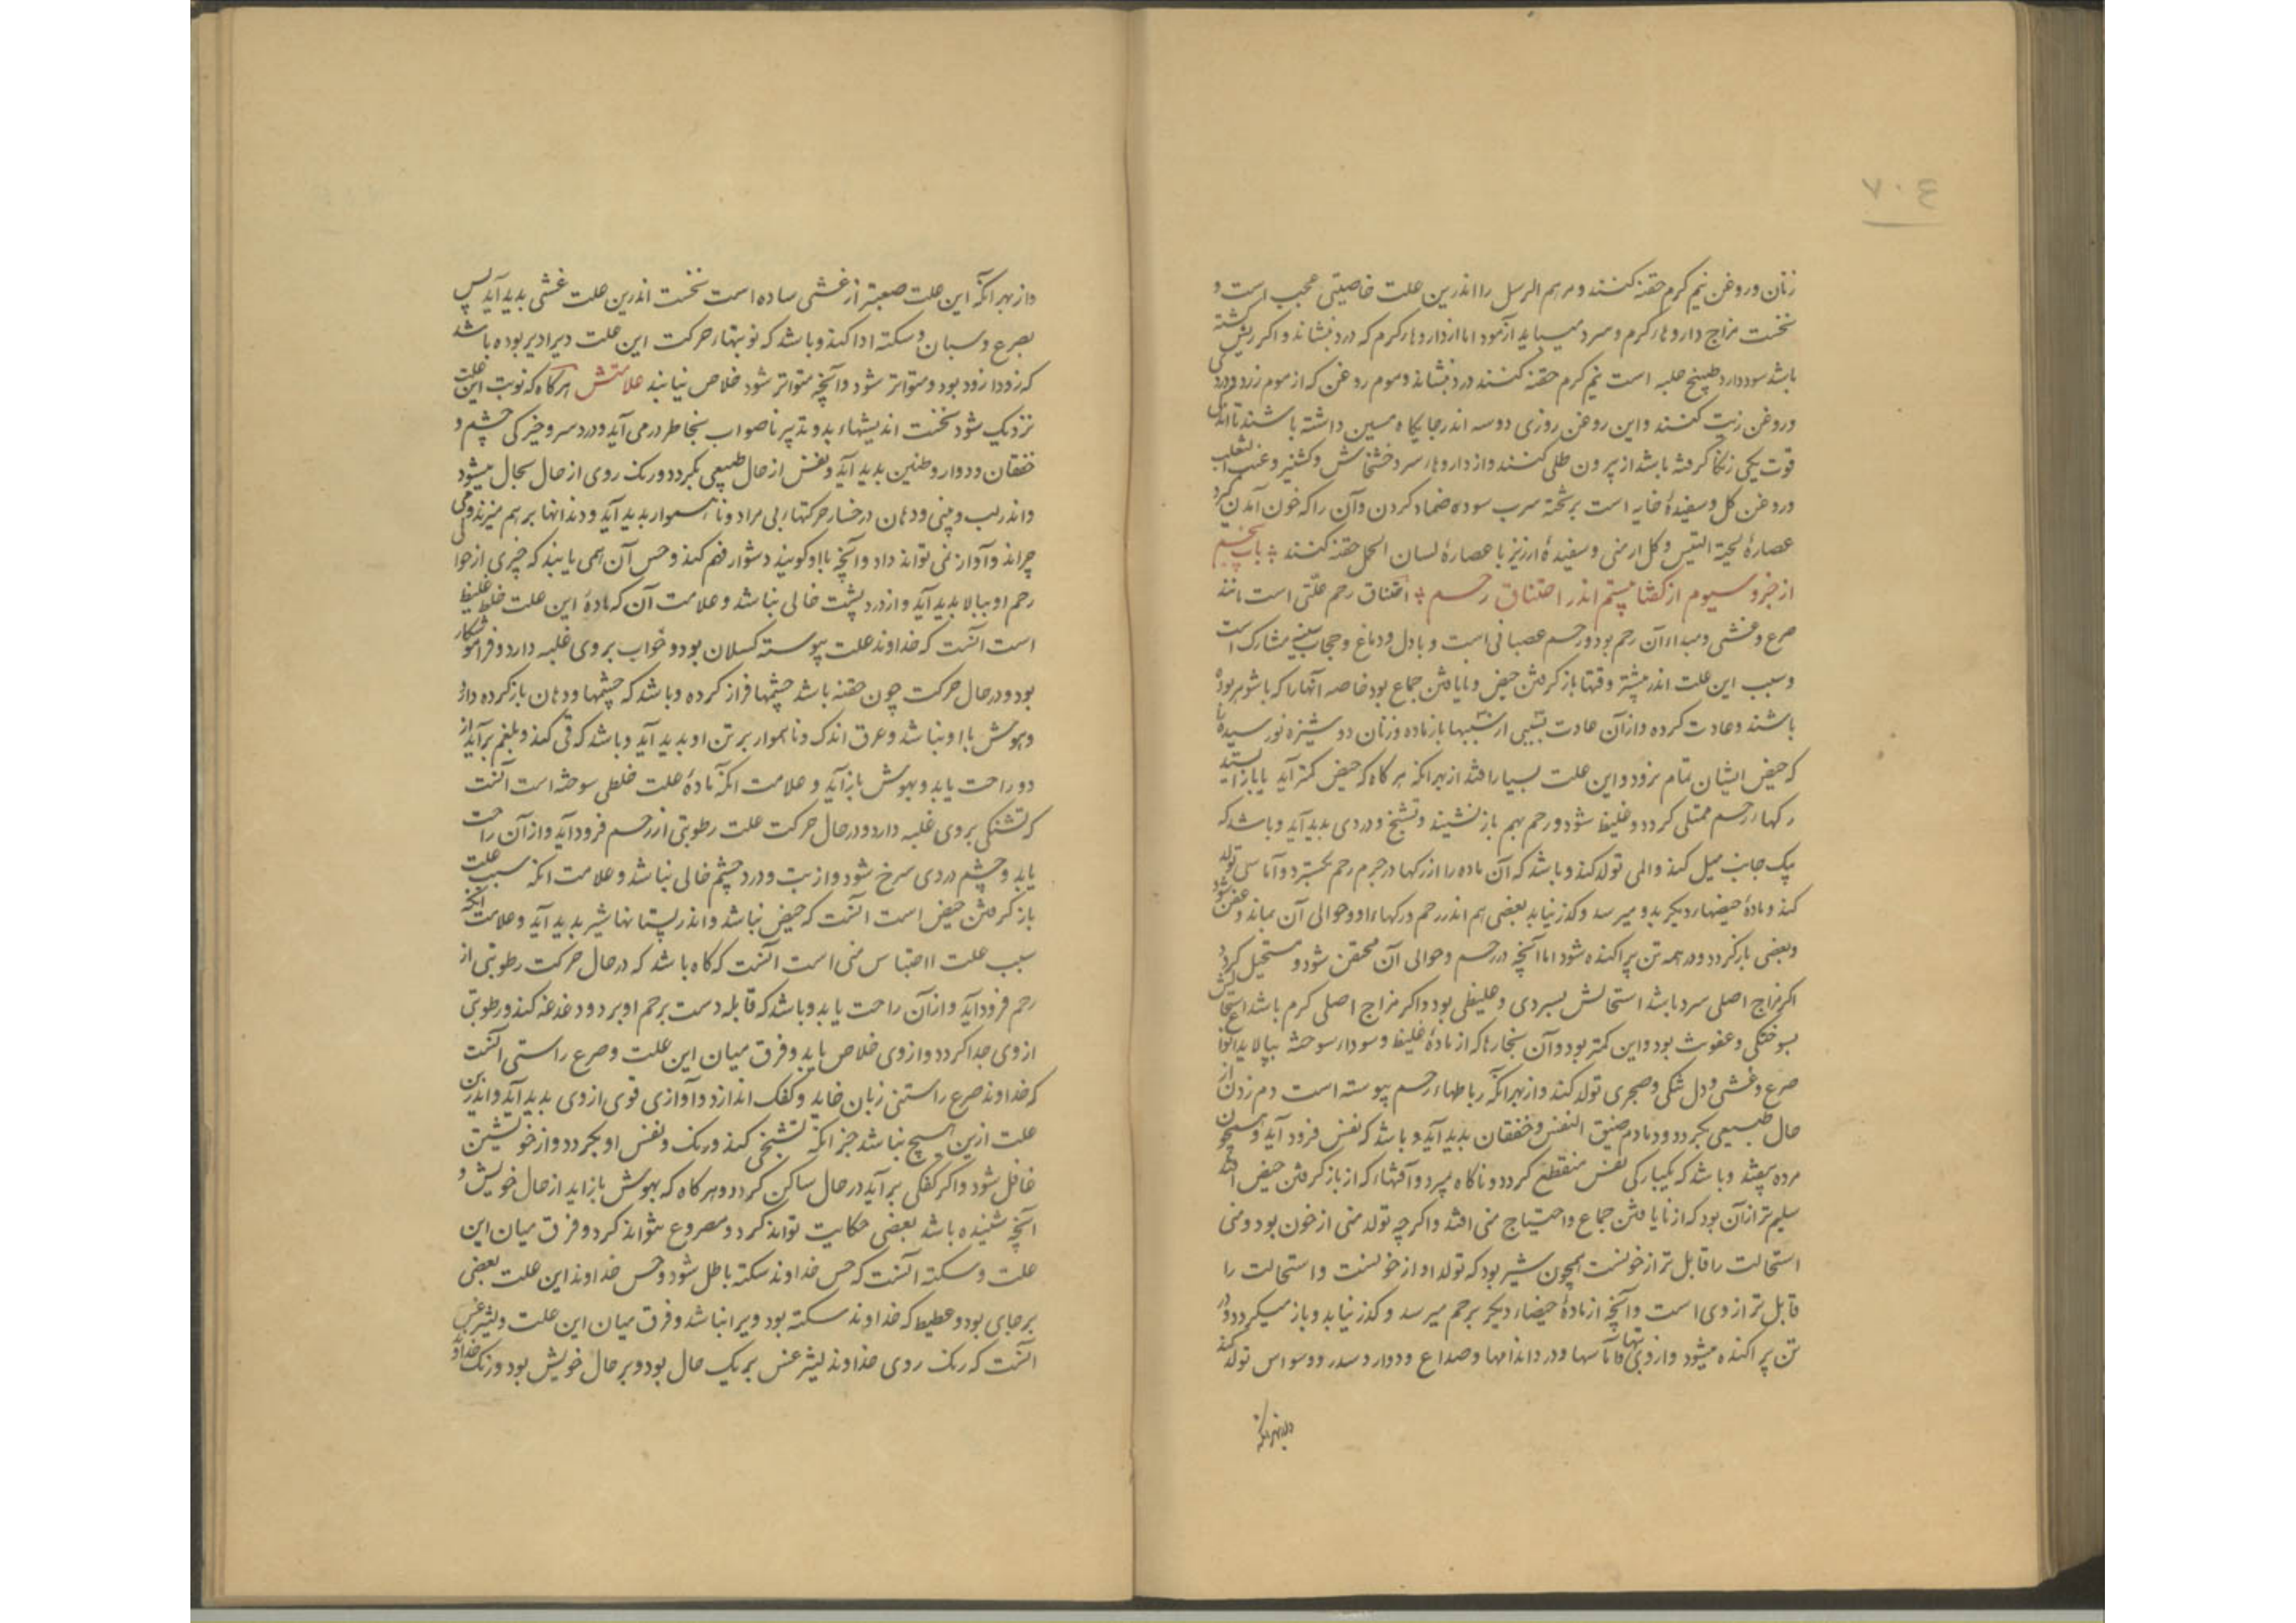 ٧٠٤
زنان و روغن نیم گرم حقنه کنند و مرهم الرسل را اندرین علت خاصیتی عجیب است و
نخست مزاج داروهاء گرم و سرد میباید آزمود اما از داروهاء گرم که درد بنشاند و اگر ریش گشته
باشد سود دارد طبیخ حلبه است نیم گرم حقنه کنند درد بنشاند و موم روغن که از موم زرد و دردی
و روغن زیت کنند و این روغن روزی دو سه اندر جایگاه مسین داشته باشند تا اندکی
قوت یکی زنگا گرفته باشد از بیرون طلی کنند و از داروهاء سرد خشخاش و کشنیز و عنب الثعلب
و روغن گل و سفیدۀ خایه است بر تخته سرب سوده ضماد کردن و آن را که خون آمدن گیرد
عصارۀ لحیة التیس و گل ارمنی و سفیدۀ ارزیز با عصارۀ لسان الحمل حقنه کنند باب پنجم
از جزو سیوم از گفتار بیستم اندر اختناق رحم اختناق رحم علتی است مانند
صرع و غشی و مبداء آن رحم بود و رحم عصبانی است و با دل و دماغ و حجاب سینه مشارک است
و سبب این علت اندر بیشتر وقتها باز گرفتن حیض و نایافتن جماع بود خاصه آنها را که با شوهر بوده
باشند و عادت کرده و از آن عادت بسببی از سببها باز مانده و زنان دوشیزه نورسیده را
که حیض ایشان تمام نرود و این علت بسیار افتد از بهر انکه هرگاه که حیض کمتر آید یا باز ایستد
رگهاء رحم ممتلی گردد و غلیظ شود و رحم بهم باز نشیند و تشنج و دردی بدید آید و باشد که
بیک جانب میل کند و المی تولد کند و باشد که آن ماده را از رگها در جرم رحم بگسترد و آماسی تولد
کند و مادۀ حیضهاء دیگر بدو میرسد و گذر نیابد بعضی هم اندر رحم و رگهاء او و حوالی آن بماند و عفن شود
و بعضی باز گردد و در همه تن پراکنده شود اما آنچه در رحم و حوالی آن محتقن شود و مستحیل گردد
اگر مزاج اصلی سرد باشد استحالتش بسردی و غلیظی بود و اگر مزاج اصلی گرم باشد استحالتش
بسوختگی و عفونت بود و این کمتر بود و آن بخارها که از مادۀ غلیظ و سوداء سوخته ببالا براید انواع
صرع و غشی و دل تنگی و ضجری تولد کند و از بهر انکه رباطهاء رحم پیوسته است دم زدن از
حال طبیعی بگردد و دمادم ضیق النفس و خفقان بدید آید و باشد که نفس فرود آید و همچون
مرده بیفتد و باشد که یکبارگی نفس منقطع گردد و ناگاه بمیرد و آفتهاء که از باز گرفتن حیض افتد
سلیم تر از آن بود که از نایافتن جماع و احتیاج منی افتد و اگرچه تولد منی از خون بود و منی
استحالت را قابل تر از خونست همچون شیر بود که تولد او از خونست و استحالت را
قابل تر از وی است و آنچه از مادۀ حیضاء دیگر برحم میرسد و گذر نیابد و باز میگردد و در
تن پراکنده میشود و از وی تبها و آماسها و درد اندامها و صداع و دوار و سدر و وسواس تولد کند
و از بهر انکه
و از بهر انکه این علت صعبتر از غشی ساده است نخست اندرین علت غشی بدید آید پس
بصرع و سبات و سکته ادا کند و باشد که نوبتهاء حرکت این علت دیرا دیر بوده باشد
که زودا زود بود و متواتر شود و آنچه متواتر شود خلاص نیابند علامتش هرگاه که نوبت این علت
نزدیک شود نخست اندیشهاء بد و تدبیر ناصواب بخاطر درمی آید و درد سر و خیرگی چشم و
خفقان و دوار و طنین بدید آید و نفس از حال طبیعی بگردد و رنگ روی از حال بحال میشود
و اندر لب و بینی و دهان و رخسار حرکتهاء بی مراد و ناهموار بدید آید و دندانها بر هم میزند و می
چراند و آواز نمی تواند داد و آنچه با او گویند دشوار فهم کند و حس آن همی یابند که چیزی از حوالی
رحم او ببالا بدید آید و از درد پشت خالی نباشد و علامت آن که مادۀ این علت خلط غلیظ
است آنست که خداوند علت پیوسته کسلان بود و خواب بر وی غلبه دارد و فراموشکار
بود و در حال حرکت چون خفته باشد چشمها فراز کرده و باشد که چشمها و دهان باز کرده دارد
و هوش با او نباشد و عرق اندک و ناهموار بر تن او بدید آید و باشد که قی کند و بلغم برآید از
دو راحت یابد و بهوش باز آید و علامت انکه مادۀ علت خلطی سوخته است آنست
که تشنگی بر وی غلبه دارد و در حال حرکت علت رطوبتی از رحم فرود آید و از آن راحت
یابد و چشم و روی سرخ شود و از تب و درد چشم خالی نباشد و علامت انکه سبب علت
باز گرفتن حیض است آنست که حیض نباشد و اندر پستانها شیر بدید آید و علامت انکه
سبب علت احتباس منی است آنست که گاه باشد که در حال حرکت رطوبتی از
رحم فرود آید و از آن راحت یابد و باشد که قابله دست برحم او برد و دغدغه کند و رطوبتی
از وی جدا گردد و از وی خلاص یابد و فرق میان این علت و صرع راستی آنست
که خداوند صرع راستی زبان خاید و کفک اندازد و آوازی قوی از وی بدید آید و اندرین
علت ازین هیچ نباشد جز انکه تشنجی کند و رنگ و نفس او بگردد و از خویشتن
غافل شود و اگر کفکی برآید در حال ساکن گردد و هرگاه که بهوش باز اید از حال خویش و
آنچه شنیده باشد بعضی حکایت تواند کرد و مصروع نتواند کرد و فرق میان این
علت و سکته آنست که حس خداوند سکته باطل شود و حس خداوند این علت بعضی
برجای بود و غطیط که خداوند سکته بود ویرا نباشد و فرق میان این علت و لیثرغس
آنست که رنگ روی خداوند لیثرغس بر یک حال بود و بر حال خویش بود و رنگ خداوند